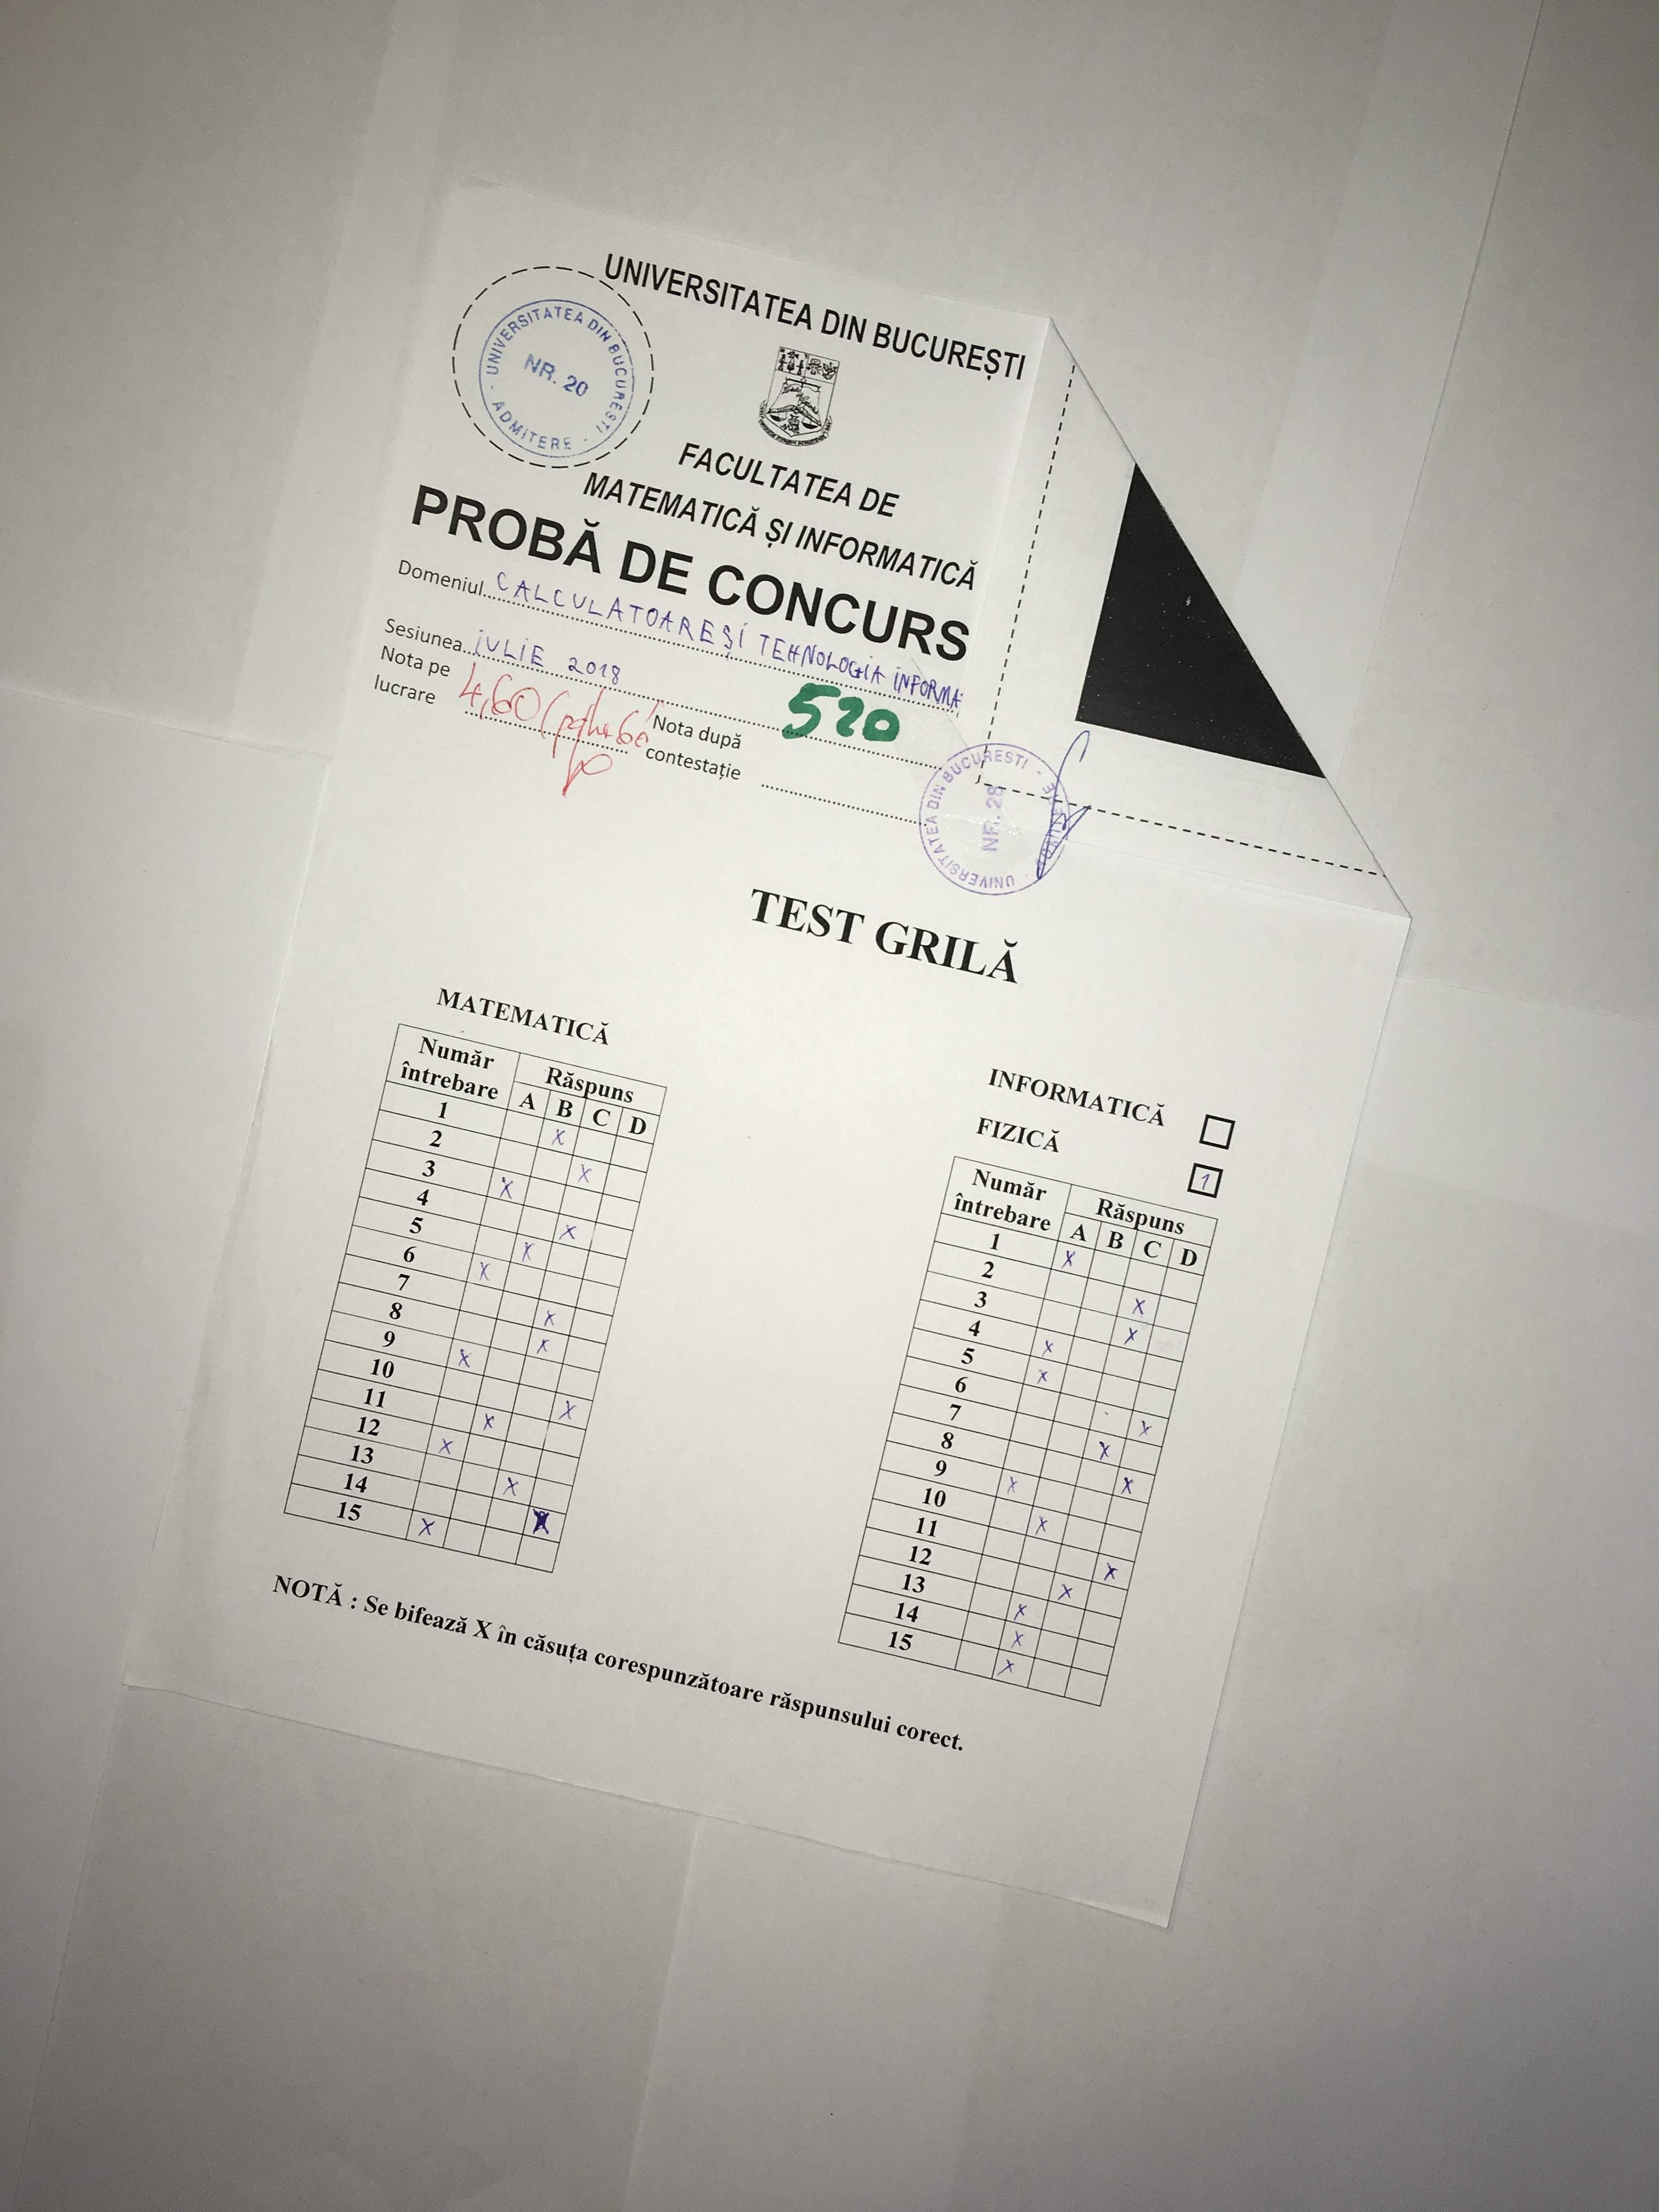 UNIVERSITATEA DIN BUCUREȘTI
UNIVERSITATEA DIN BUCUREȘTI - ADMITERE -
NR. 20
FACULTATEA DE
MATEMATICĂ ȘI INFORMATICĂ
PROBĂ DE CONCURS
Domeniul CALCULATOARE ȘI TEHNOLOGIA INFORMA
Sesiunea IULIE 2018
520
Nota pe lucrare 4,60
Nota după contestație
UNIVERSITATEA DIN BUCURESTI
NR. 28
TEST GRILĂ
MATEMATICĂ
Număr întrebare Răspuns
A B C D
1 X
2 X
3 X
4 X
5 X
6 X
7 X
8 X
9 X
10 X
11 X
12 X
13 X
14 X
15 X
INFORMATICĂ
FIZICĂ 1
Număr întrebare Răspuns
A B C D
1 X
2 X
3 X
4 X
5 X
6 X
7 X
8 X
9 X
10 X
11 X
12 X
13 X
14 X
15 X
NOTĂ : Se bifează X în căsuța corespunzătoare răspunsului corect.